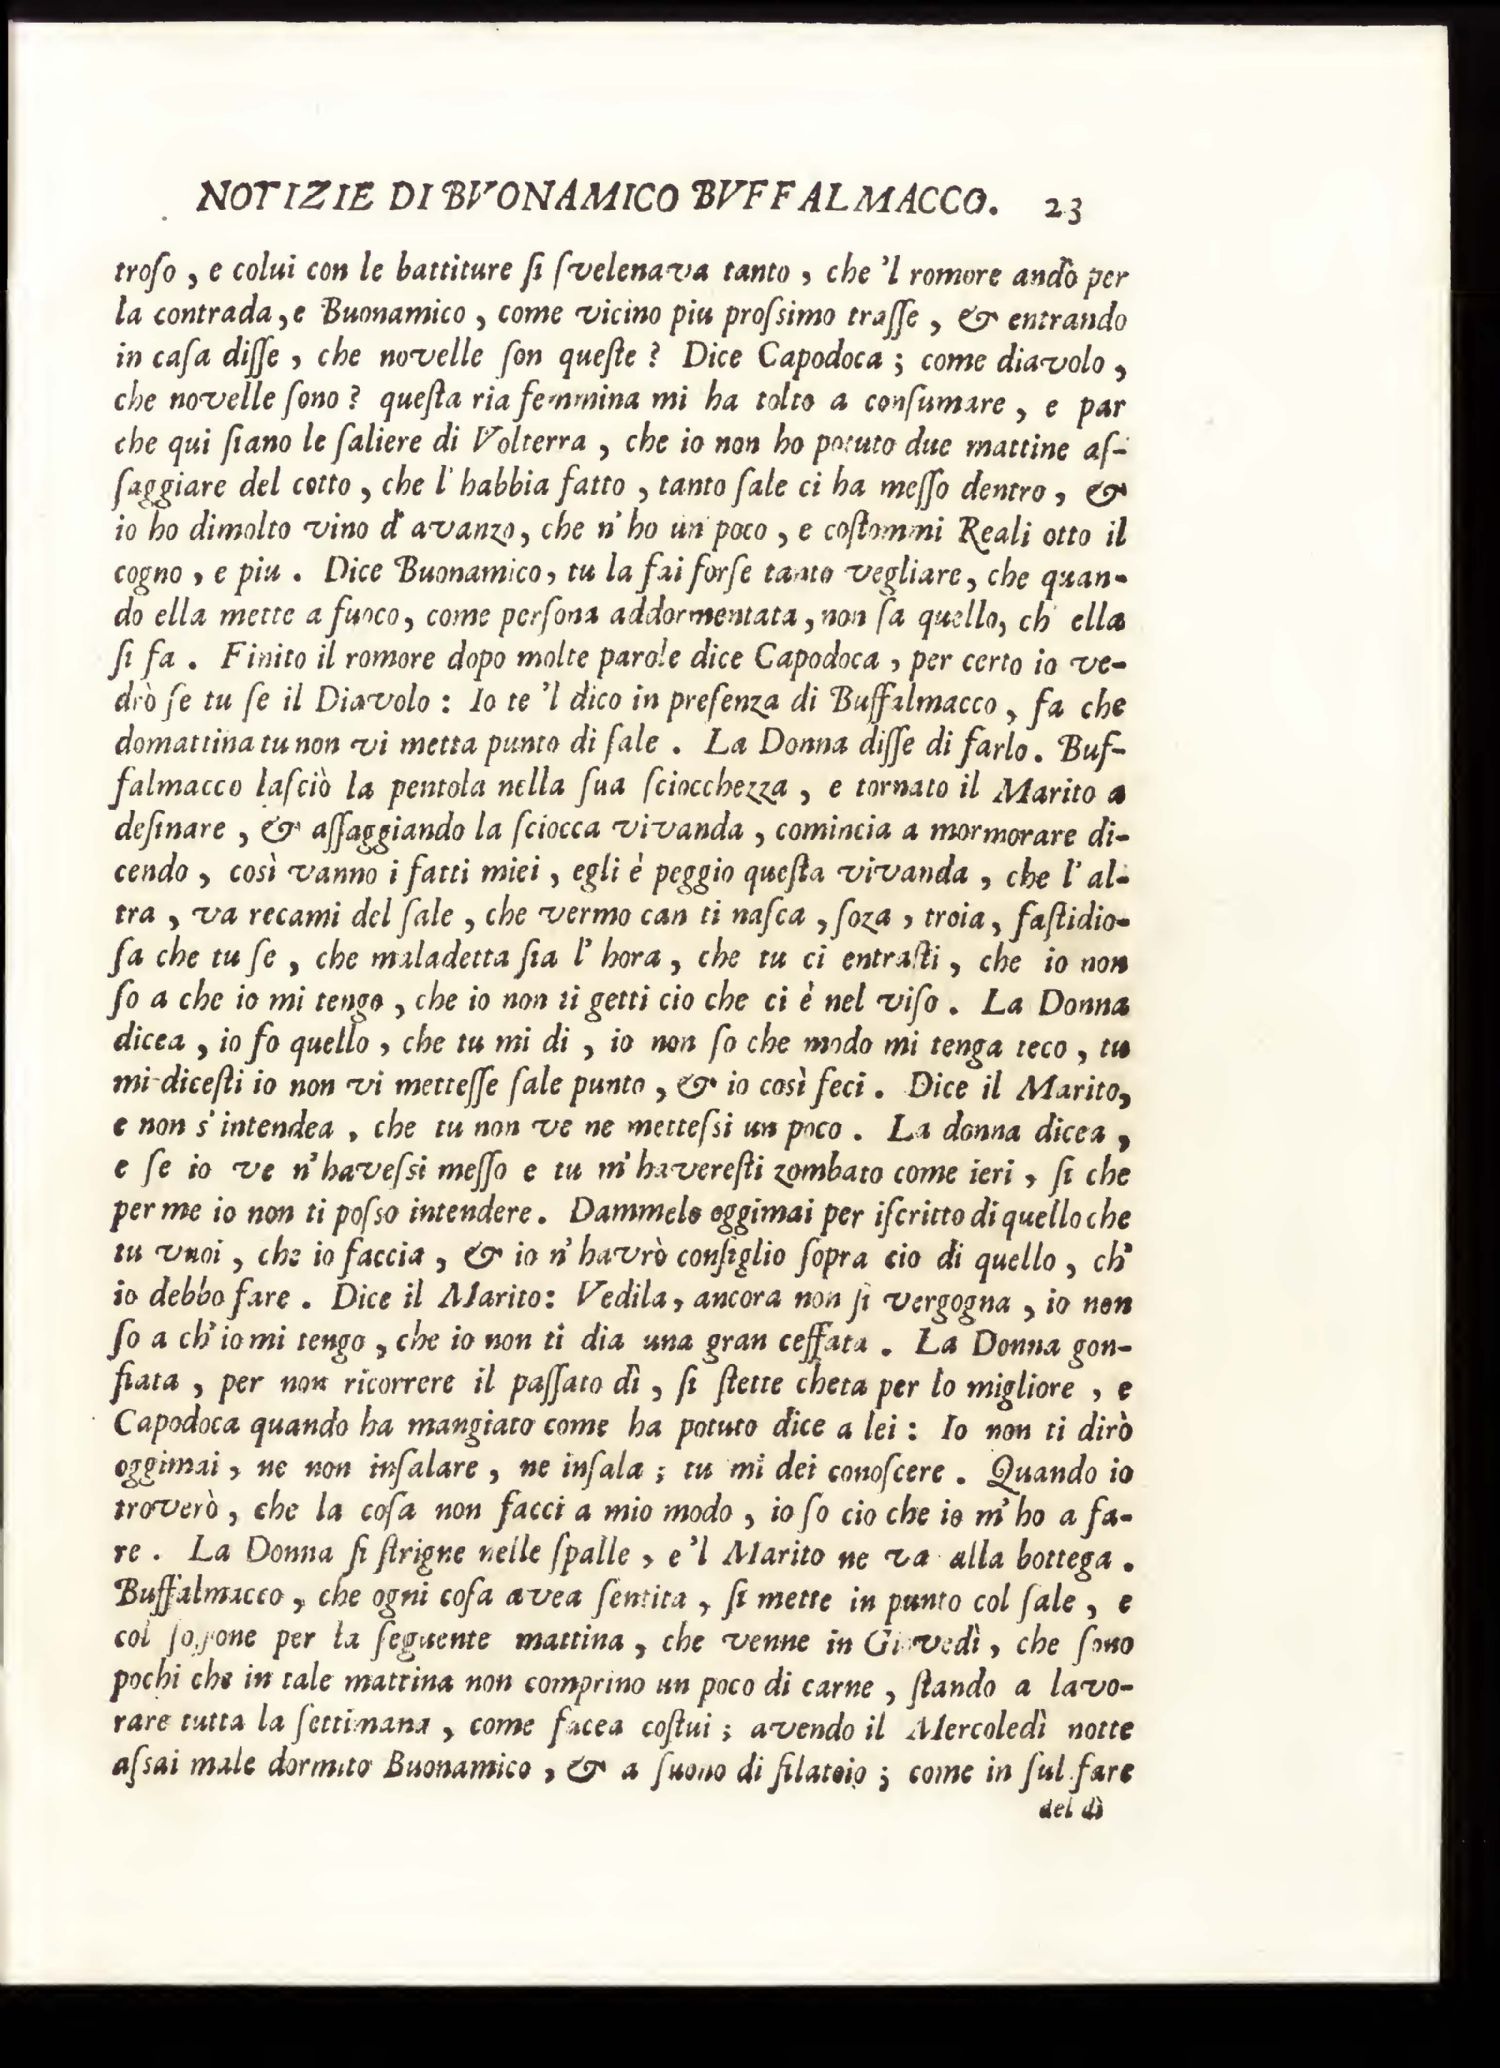 NOTIZIE DI BVONAMICO BVFFALMACCO. 23
troſo, e colui con le battiture ſi ſvelenava tanto, che 'l romore andò per
la contrada, e Buonamico, come vicino piu proſsimo traſſe, & entrando
in caſa diſſe, che novelle ſon queſte? Dice Capodoca; come diavolo,
che novelle ſono? queſta ria femmina mi ha tolto a conſumare, e par
che qui ſiano le ſaliere di Volterra, che io non ho potuto due mattine aſ-
ſaggiare del cotto, che l' habbia fatto, tanto ſale ci ha meſſo dentro, &
io ho dimolto vino d' avanzo, che n' ho un poco, e coſtommi Reali otto il
cogno, e piu. Dice Buonamico, tu la fai forſe tanto vegliare, che quan-
do ella mette a fuoco, come perſona addormentata, non ſa quello, ch' ella
ſi fa. Finito il romore dopo molte parole dice Capodoca, per certo io ve-
drò ſe tu ſe il Diavolo: Io te 'l dico in preſenza di Buffalmacco, fa che
domattina tu non vi metta punto di ſale. La Donna diſſe di farlo. Buf-
falmacco laſciò la pentola nella ſua ſciocchezza, e tornato il Marito a
deſinare, & aſſaggiando la ſciocca vivanda, comincia a mormorare di-
cendo, così vanno i fatti miei, egli è peggio queſta vivanda, che l' al-
tra, va recami del ſale, che vermo can ti naſca, ſoza, troia, faſtidio-
ſa che tu ſe, che maladetta ſia l' hora, che tu ci entraſti, che io non
ſo a che io mi tengo, che io non ti getti cio che ci è nel viſo. La Donna
dicea, io fo quello, che tu mi di, io non ſo che modo mi tenga teco, tu
mi diceſti io non vi metteſſe ſale punto, & io così feci. Dice il Marito,
e non s' intendea, che tu non ve ne metteſsi un poco. La donna dicea,
e ſe io ve n' haveſsi meſſo e tu m' havereſti zombato come ieri, ſi che
per me io non ti poſso intendere. Dammelo oggimai per iſcritto di quello che
tu vuoi, che io faccia, & io n' havrò conſiglio ſopra cio di quello, ch'
io debbo fare. Dice il Marito: Vedila, ancora non ſi vergogna, io non
ſo a ch' io mi tengo, che io non ti dia una gran ceffata. La Donna gon-
fiata, per non ricorrere il paſſato dì, ſi ſtette cheta per lo migliore, e
Capodoca quando ha mangiato come ha potuto dice a lei: Io non ti dirò
oggimai, ne non inſalare, ne inſala; tu mi dei conoſcere. Quando io
troverò, che la coſa non facci a mio modo, io ſo cio che io m' ho a fa-
re. La Donna ſi ſtrigne nelle ſpalle, e 'l Marito ne va alla bottega.
Buffalmacco, che ogni coſa avea ſentita, ſi mette in punto col ſale, e
col ſoffione per la ſeguente mattina, che venne in Giovedì, che ſono
pochi che in tale mattina non comprino un poco di carne, ſtando a lavo-
rare tutta la ſettimana, come facea coſtui; avendo il Mercoledì notte
aſsai male dormito Buonamico, & a ſuono di filatoio; come in ſul fare
del dì